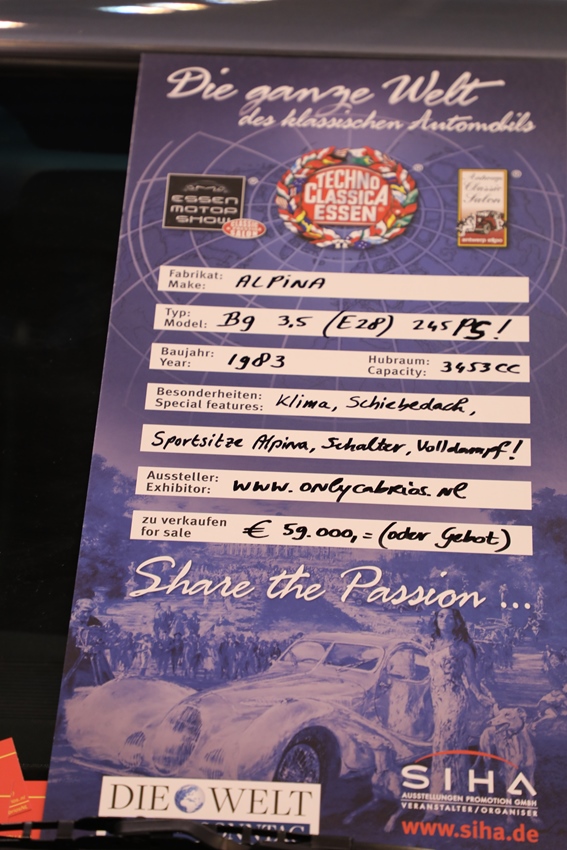 Die ganze Welt
des klassischen Automobils
ESSEN
MOTOR
SHOW
TECHNO
CLASSICA
ESSEN
Classic
Salon
antwerp expo
Fabrikat:
Make: ALPINA
Typ:
Model: B9 3.5 (E28) 245 PS!
Baujahr:
Year: 1983
Hubraum:
Capacity: 3453 CC
Besonderheiten:
Special features: Klima, Schiebedach,
Sportsitze Alpina, Schalter, Volldampf!
Aussteller:
Exhibitor: www.onlycabrios.nl
zu verkaufen
for sale € 59.000,= (oder Gebot)
Share the Passion ...
DIE WELT
SONNTAG
SIHA
AUSSTELLUNGEN PROMOTION GMBH
VERANSTALTER/ORGANISER
www.siha.de